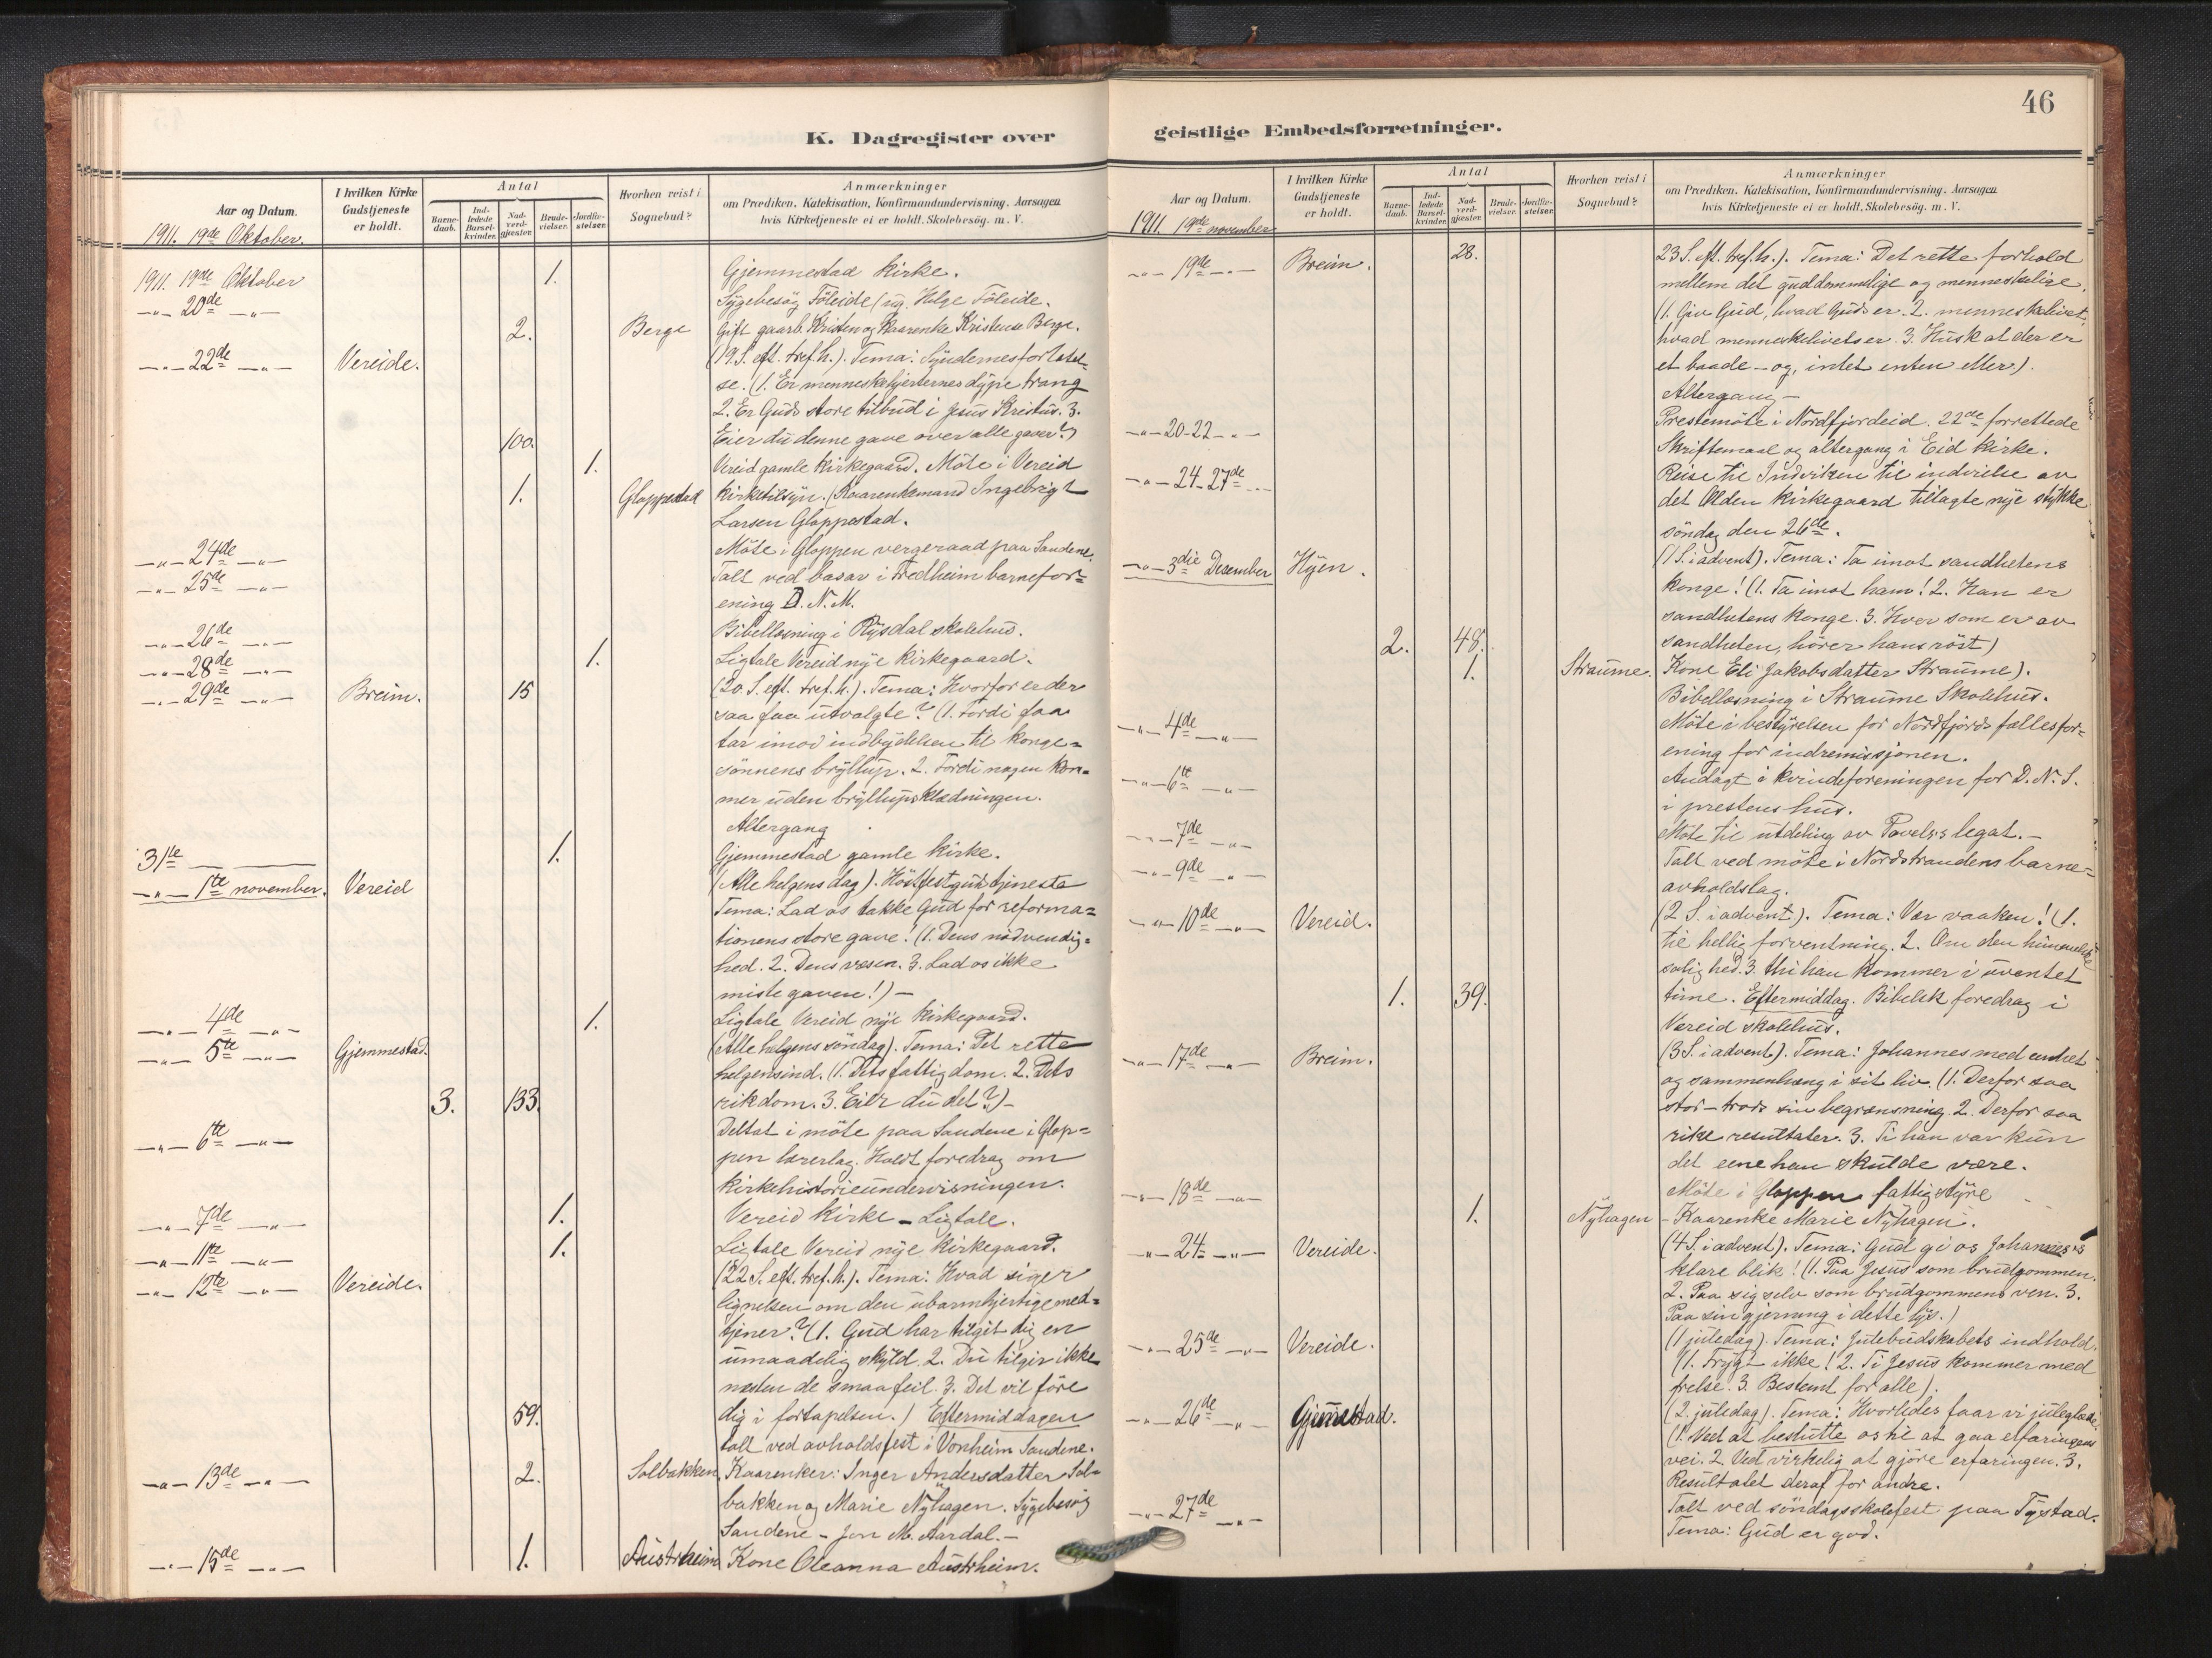 K. Dagregister over
Aar og Datum.
I hvilken Kirke Gudstjeneste er holdt.
Antal
Barne-daab.
Ind-ledede Barsel-kvinder.
Nad-verd-gjæster.
Brude-vielser.
Jordfæ-stelser.
Hvorhen reist i Sognebud?
Anmærkninger
om Prædiken, Katekisation, Konfirmandundervisning. Aarsagen
hvis Kirketjeneste ei er holdt. Skolebesøg. m. V.
1911. 19de Oktober.
1911. 19de Oktober 1. Gjemmestad kirke.
-"- 20de -"- Sygebesög Föleide (ug. Helge Föleide.
2. Berge Gift gaarb. Kristen og Kaarenke Kristense Berge.
-"- 22de -"- Vereide. (19. S. eft. tref. h.). Tema: Syndernes forlatel-
se. (1. Er menneskehjerternes dype trang
2. Er Guds store tilbud i Jesus Kristus. 3.
100. Eier du denne gave over alle gaver?)
1. Vereid gamle kirkegaard. Möte i Vereid
1. Gloppestad kirketilsyn. (Kaarenkemand Ingebrigt
Larsen Gloppestad.
-"- 24de -"- Möte i Gloppen vergeraad paa Sandene.
-"- 25de -"- Talt ved basar i Fredheim barnefor-
ening D. N. M.
-"- 26de -"- Bibellæsning i Rysdal skolehus.
-"- 28de -"- 1. Ligtale Vereid nye kirkegaard.
-"- 29de -"- Breim. 15 (20. S. eft. tref. h.). Tema: Hvorfor er der
saa faa utvalgte? (1. Fordi faa
tar imod indbydelsen til konge-
sönnens bryllup. 2. Fordi nogen kom-
mer uden bryllupsklædningen.
Altergang
31te 1. Gjemmestad gamle kirke.
-"- 1te november. Vereid (Alle helgens dag). Höstfestgudstjeneste
Tema: Lad os takke Gud for reforma-
tionens store gave! (1. Dens nödvendig-
hed. 2. Dens væsen. 3. Lad os ikke
miste gaven!) -
-"- 4de -"- 1. Ligtale Vereid nye kirkegaard.
-"- 5te -"- Gjemmestad. (Alle helgens söndag). Tema: Det rette
helgensind. (1. Dets fattigdom. 2. Dets
3. 133. rikdom. 3. Eier du det?) -
-"- 6te -"- Deltat i möte paa Sandene i Glop-
pen lærerlag. Holdt foredrag om
kirkehistorieundervisningen.
-"- 7de -"- 1. Vereid kirke - Ligtale.
-"- 11te -"- 1. Ligtale Vereid nye kirkegaard.
-"- 12te -"- Vereide. (22 S. eft. tref. h.). Tema: Hvad siger
lignelsen om den ubarmhjertige med-
tjener? (1. Gud har tilgit dig en
umaadelig skyld. 2. Du tilgir ikke
næsten de smaa feil. 3. Det vil före
59. dig i fortapelsen.) Eftermiddagen
talt ved avholdsfest i Vonheim Sandene.
-"- 13de -"- 2. Solbakken. Kaarenker: Inger Andersdatter Sol-
bakken og Marie Nyhagen. Sygebesög
Sandene - Jon M. Aardal. -
-"- 15de -"- 1. Austrheim Kone Oleanna Austrheim.
46
geistlige Embedsforretninger.
Aar og Datum.
I hvilken Kirke Gudstjeneste er holdt.
Antal
Barne-daab.
Ind-ledede Barsel-kvinder.
Nad-verd-gjæster.
Brude-vielser.
Jordfæ-stelser.
Hvorhen reist i Sognebud?
Anmærkninger
om Prædiken, Katekisation, Konfirmandundervisning. Aarsagen
hvis Kirketjeneste ei er holdt. Skolebesøg. m. V.
1911. 19de november
-"- 19de -"- Breim. 28. 23 S. eft. tref. h.). Tema: Det rette forhold
mellem det guddommelige og menneskelige.
(1. Giv Gud, hvad Guds er. 2. menneskelivet,
hvad menneskelivets er. 3. Husk at der er
et baade - og, intet enten eller).
Altergang -
-"- 20-22 -"- Prestemöte i Nordfjordeid. 22de forrettede
Skriftemaal og altergang i Eid kirke.
-"- 24-27de -"- Reise til Indviken til indvielse av
det Olden kirkegaard tillagte nye stykke
söndag den 26de.
-"- 3die Desember Hyen. (1 S. i advent). Tema: Ta imot sandhetens
konge! (1. Ta imot ham! 2. Han er
sandhetens konge. 3. Hver som er av
2. 48. sandheten, hörer hans röst)
1. Straume. Kone Eli Jakobsdatter Straume).
Bibellæsning i Straume Skolehus.
-"- 4de -"- Möte i bestyrelsen for Nordfjords fællesfor-
ening for indremissjonen.
-"- 6te -"- Andagt i kvindeforeningen for D. N. S.
i prestens hus.
-"- 7de -"- Möte til utdeling av Povels's legat. -
-"- 9de -"- Talt ved möte i Nordstrandens barne-
avholdslag.
-"- 10de -"- Vereid. (2 S. i advent). Tema: Vær vaaken! (1.
til hellig forventning. 2. Om den himmelske
salighed. 3. thi han kommer i uventet
1. 39. time. Eftermiddag. Bibelsk foredrag i
Vereid skolehus.
-"- 17de -"- Breim. (3 S. i advent). Tema: Johannes med enhet
og sammenhæng i sit liv. (1. Derfor saa
stor - trods sin begrænsning. 2. Derfor saa
rike resultater. 3. Ti han var kun
det ene han skulde være.
-"- 18de -"- Möte i Gloppen fattigstyre
1. Nyhagen - Kaarenke Marie Nyhagen.
-"- 24 -"- Vereide. (4 S. i advent). Tema: Gud gi os Johannes's
klare blik! (1. Paa Jesus som brudgommen.
2. Paa sig selv som brudgommens ven. 3.
Paa sin gjerning i dette lys.)
-"- 25de -"- Vereide. (1 juledag). Tema: Julebudskabets indhold.
(1. Frygt ikke! 2. Ti Jesus kommer med
frelse. 3. Bestemt for alle).
-"- 26de -"- Gjemestad. (2. juledag). Tema: Hvorledes faar vi juleglæde.
(1. Ved at beslutte os til at gaa erfaringens
vei. 2. Ved virkelig at gjöre erfaringen. 3.
Resultatet deraf for andre.
-"- 27de -"- Talt ved söndagsskolefest paa Tystad.
Tema: Gud er god.